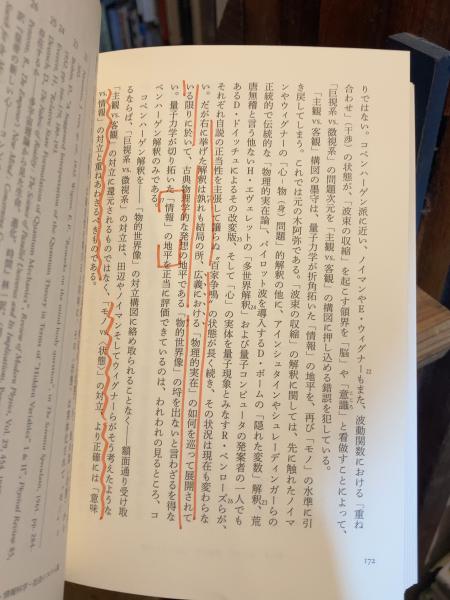 りではない。コペンハーゲン派に近い、ノイマンやE・ウィグナー22もまた、波動関数における「重ね
合わせ」（干渉）の状態が、「波束の収縮」を起こす領界を「脳」や「意識」と看做すことによって、
「巨視系 vs. 微視系」の問題次元を「主観 vs. 客観」の構図に押し込める錯誤を犯している。
「主観 vs. 客観」構図の墨守は、量子力学が折角拓いた「情報」の地平を、再び「モノ」の水準に引
き戻してしまう。これでは元の木阿弥である。「波束の収縮」の解釈に関しては、先に触れたノイマ
ンやウィグナーの「心‐物（身）問題」的解釈の他に、アインシュタインやシュレーディンガーらの
正統的で伝統的な「物理的実在論」、パイロット波を導入するD・ボームの「隠れた変数」解釈、荒
唐無稽と言う他ないH・エヴェレットの「多世界解釈」および量子コンピュータの発案者の一人でも
あるD・ドイッチュによるその改変版、そして「心」の実体を量子現象とみなすR・ペンローズらが、
それぞれ自説の正当性を主張して譲らぬ〝百家争鳴〟の状態が長く続き、その状況は現在も変わらな
い。だが右に挙げた解釈は孰れも結局の所、広義における「物理的実在」の如何を巡って展開されて
いる限りに於いて、古典物理学的な発想の地平である「物的世界像」の埒を出ないと言わざるを得な
い。量子力学が切り拓いた「情報」の地平を正当に評価できているのは、われわれの見るところ、コ
ペンハーゲン解釈のみである。
コペンハーゲン解釈を――「物的世界像」の対立構図に絡め取られることなく――額面通り受け取
るならば、「巨視系 vs. 微視系」の対立は、田辺やノイマンそしてウィグナーらがそう考えたような
「主観 vs. 客観」の対立に還元されるものではなく、「モノ vs.〈状態〉」の対立、より正確には「意味
vs. 情報」の対立と重ねあわさるべきものである。
172